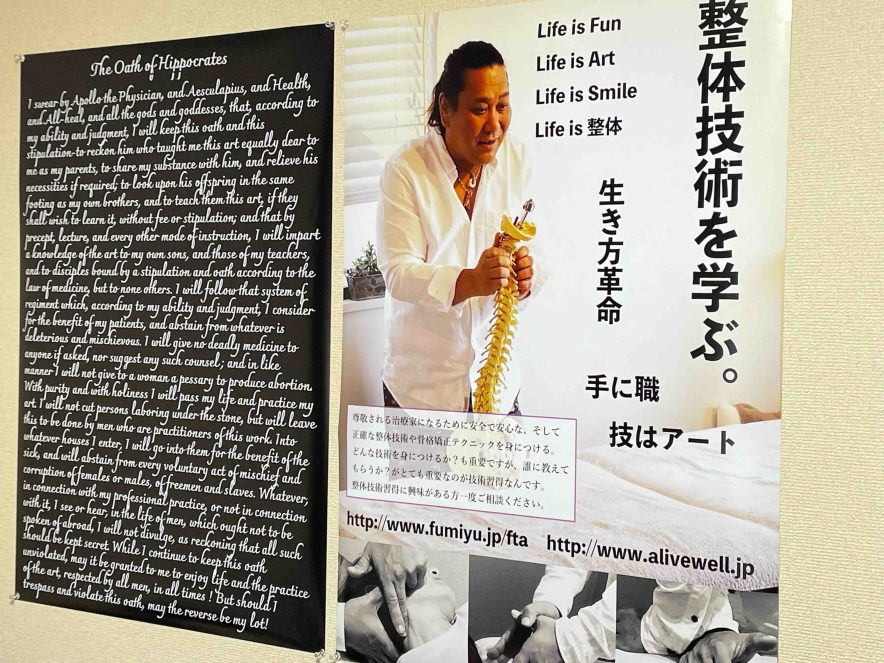 The Oath of Hippocrates
I swear by Apollo the Physician, and Aesculapius, and Health,
and All-heal, and all the gods and goddesses, that, according to
my ability and judgment, I will keep this oath and this
stipulation-to reckon him who taught me this art equally dear to
me as my parents, to share my substance with him, and relieve his
necessities if required; to look upon his offspring in the same
footing as my own brothers, and to teach them this art, if they
shall wish to learn it, without fee or stipulation; and that by
precept, lecture, and every other mode of instruction, I will impart
a knowledge of the art to my own sons, and those of my teachers,
and to disciples bound by a stipulation and oath according to the
law of medicine, but to none others. I will follow that system of
regiment which, according to my ability and judgment, I consider
for the benefit of my patients, and abstain from whatever is
deleterious and mischievous. I will give no deadly medicine to
anyone if asked, nor suggest any such counsel; and in like
manner I will not give to a woman a pessary to produce abortion.
With purity and with holiness I will pass my life and practice my
art. I will not cut persons laboring under the stone, but will leave
this to be done by men who are practitioners of this work. Into
whatever houses I enter, I will go into them for the benefit of the
sick, and will abstain from every voluntary act of mischief and
corruption of females or males, of freemen and slaves. Whatever,
in connection with my professional practice, or not in connection
with it, I see or hear, in the life of men, which ought not to be
spoken of abroad, I will not divulge, as reckoning that all such
should be kept secret. While I continue to keep this oath
unviolated, may it be granted to me to enjoy life and the practice
of the art, respected by all men, in all times ! But should I
trespass and violate this oath, may the reverse be my lot!
Life is Fun
Life is Art
Life is Smile
Life is 整体
整体技術を学ぶ。
生き方革命
手に職
技はアート
尊敬される治療家になるために安全で安心な、そして
正確な整体技術や骨格矯正テクニックを身につける。
どんな技術を身につけるか?も重要ですが、誰に教えて
もらうか?がとても重要なのが技術習得なんです。
整体技術習得に興味がある方一度ご相談ください。
http://www.fumiyu.jp/fta
http://www.alivewell.jp